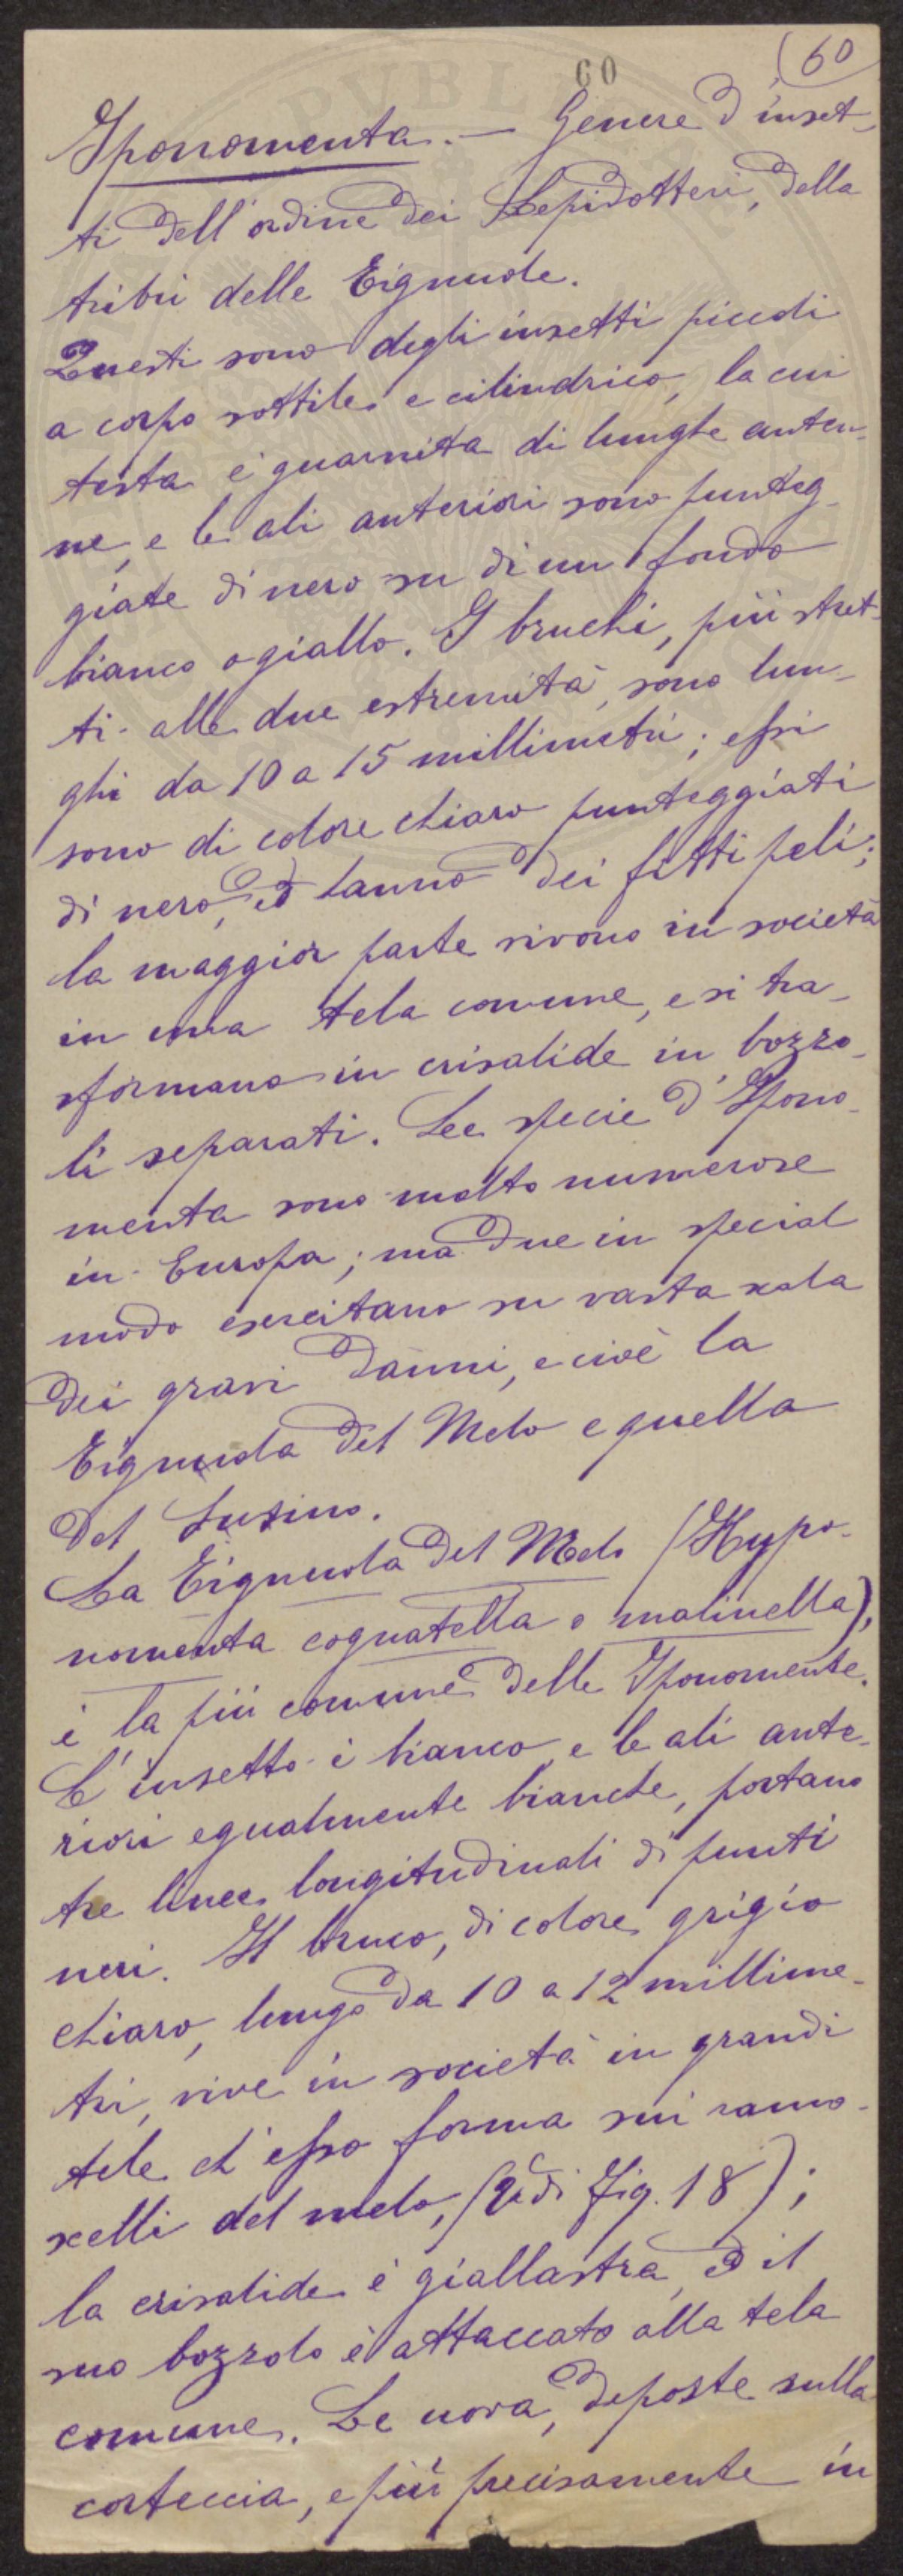 (60
60
Iponomenta. — Genere d'inset-
ti dell'ordine dei Lepidotteri, della
tribù delle Tignuole.
Questi sono degli insetti piccoli
a corpo sottile e cilindrico, la cui
testa è guarnita di lunghe anten-
ne, e le ali anteriori sono punteg-
giate di nero su di un fondo
bianco o giallo. I bruchi, più stret-
ti alle due estremità, sono lun-
ghi da 10 a 15 millimetri; essi
sono di colore chiaro punteggiati
di nero, ed hanno dei fitti peli;
la maggior parte vivono in società
in una tela comune, e si tra-
sformano in crisalide in bozzo-
li separati. Le specie d'Ipono-
menta sono molto numerose
in Europa; ma due in special
modo esercitano su vasta scala
dei gravi danni, e cioè la
Tignuola del Melo e quella
del Susino.
La Tignuola del Melo (Hypo-
nomenta cognatella o malinella),
è la più comune delle Iponomente.
L'insetto è bianco, e le ali ante-
riori egualmente bianche, portano
tre linee longitudinali di punti
neri. Il bruco, di colore grigio
chiaro, lungo da 10 a 12 millime-
tri, vive in società in grandi
tele ch'esso forma sui ramo-
scelli del melo, (Vedi fig. 18);
la crisalide è giallastra, ed il
suo bozzolo è attaccato alla tela
comune. Le uova, deposte sulla
corteccia, e più precisamente in